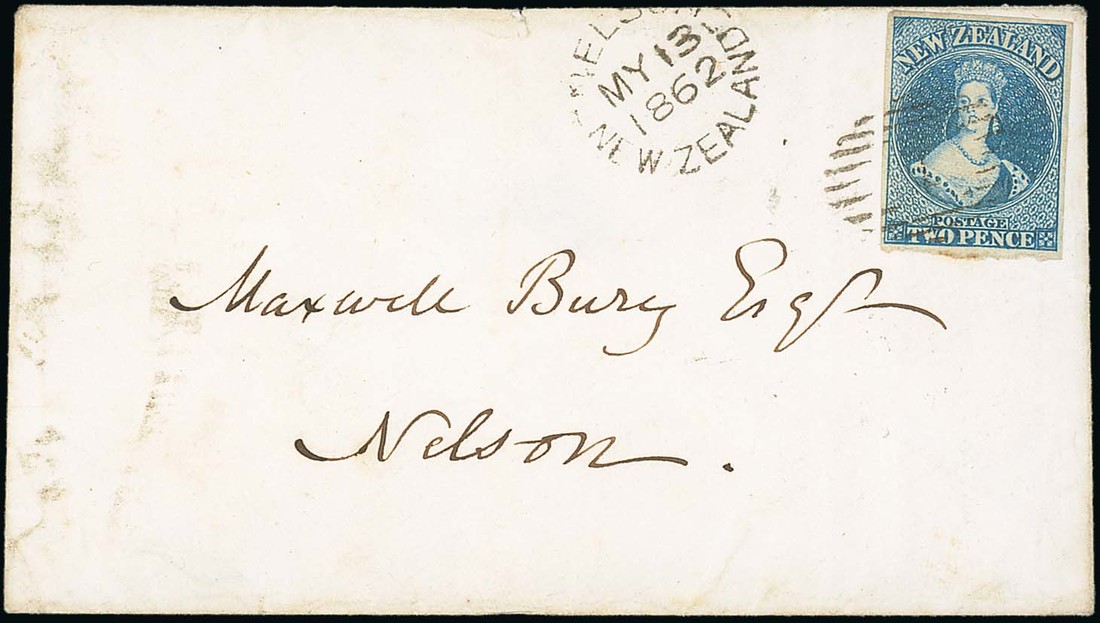 NELSON
MY 13
1862
NEW ZEALAND
NEW ZEALAND
POSTAGE
TWO PENCE
Maxwell Bury Esqr
Nelson.